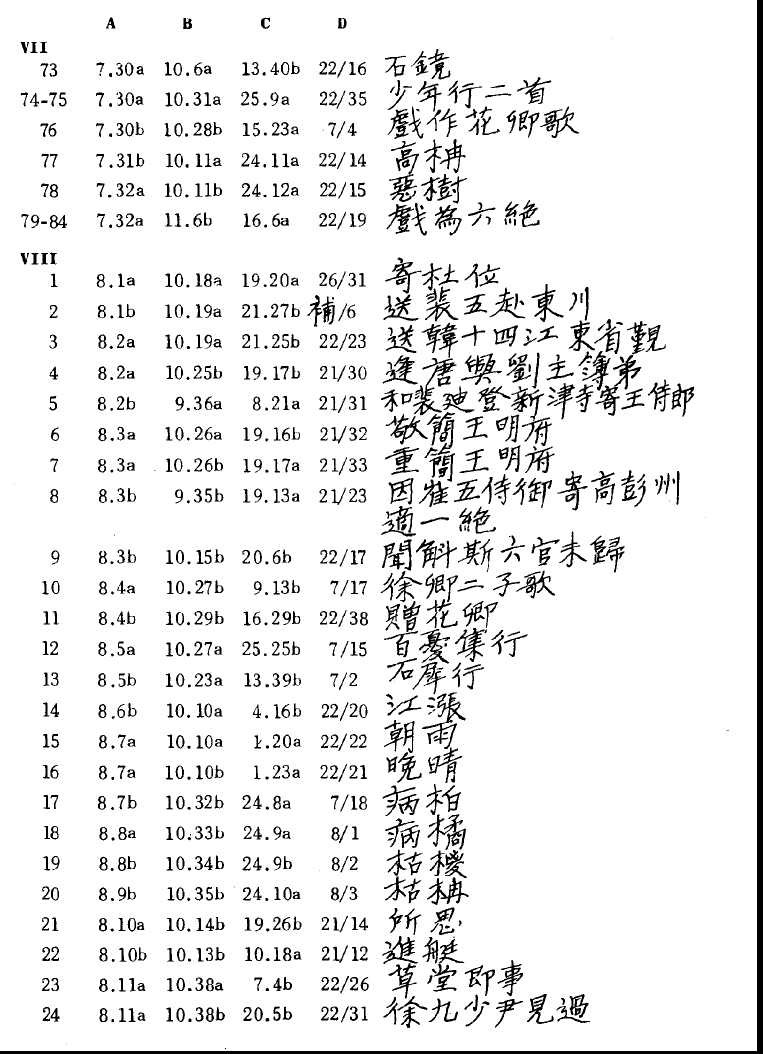 A B C D
VII
73 7.30a 10.6a 13.40b 22/16 石鏡
74-75 7.30a 10.31a 25.9a 22/35 少年行二首
76 7.30b 10.28b 15.23a 7/4 戲作花卿歌
77 7.31b 10.11a 24.11a 22/14 高柟
78 7.32a 10.11b 24.12a 22/15 惡樹
79-84 7.32a 11.6b 16.6a 22/19 戲為六絕
VIII
1 8.1a 10.18a 19.20a 26/31 寄杜位
2 8.1b 10.19a 21.27b 補/6 送裴五赴東川
3 8.2a 10.19a 21.25b 22/23 送韓十四江東省覲
4 8.2a 10.25b 19.17b 21/30 逢唐興劉主簿弟
5 8.2b 9.36a 8.21a 21/31 和裴迪登新津寺寄王侍郎
6 8.3a 10.26a 19.16b 21/32 敬簡王明府
7 8.3a 10.26b 19.17a 21/33 重簡王明府
8 8.3b 9.35b 19.13a 21/23 因崔五侍御寄高彭州
適一絕
9 8.3b 10.15b 20.6b 22/17 聞斛斯六官未歸
10 8.4a 10.27b 9.13b 7/17 徐卿二子歌
11 8.4b 10.29b 16.29b 22/38 贈花卿
12 8.5a 10.27a 25.25b 7/15 百憂集行
13 8.5b 10.23a 13.39b 7/2 石犀行
14 8.6b 10.10a 4.16b 22/20 江漲
15 8.7a 10.10a 1.20a 22/22 朝雨
16 8.7a 10.10b 1.23a 22/21 晚晴
17 8.7b 10.32b 24.8a 7/18 病柏
18 8.8a 10.33b 24.9a 8/1 病橘
19 8.8b 10.34b 24.9b 8/2 枯椶
20 8.9b 10.35b 24.10a 8/3 枯柟
21 8.10a 10.14b 19.26b 21/14 所思
22 8.10b 10.13b 10.18a 21/12 進艇
23 8.11a 10.38a 7.4b 22/26 草堂即事
24 8.11a 10.38b 20.5b 22/31 徐九少尹見過